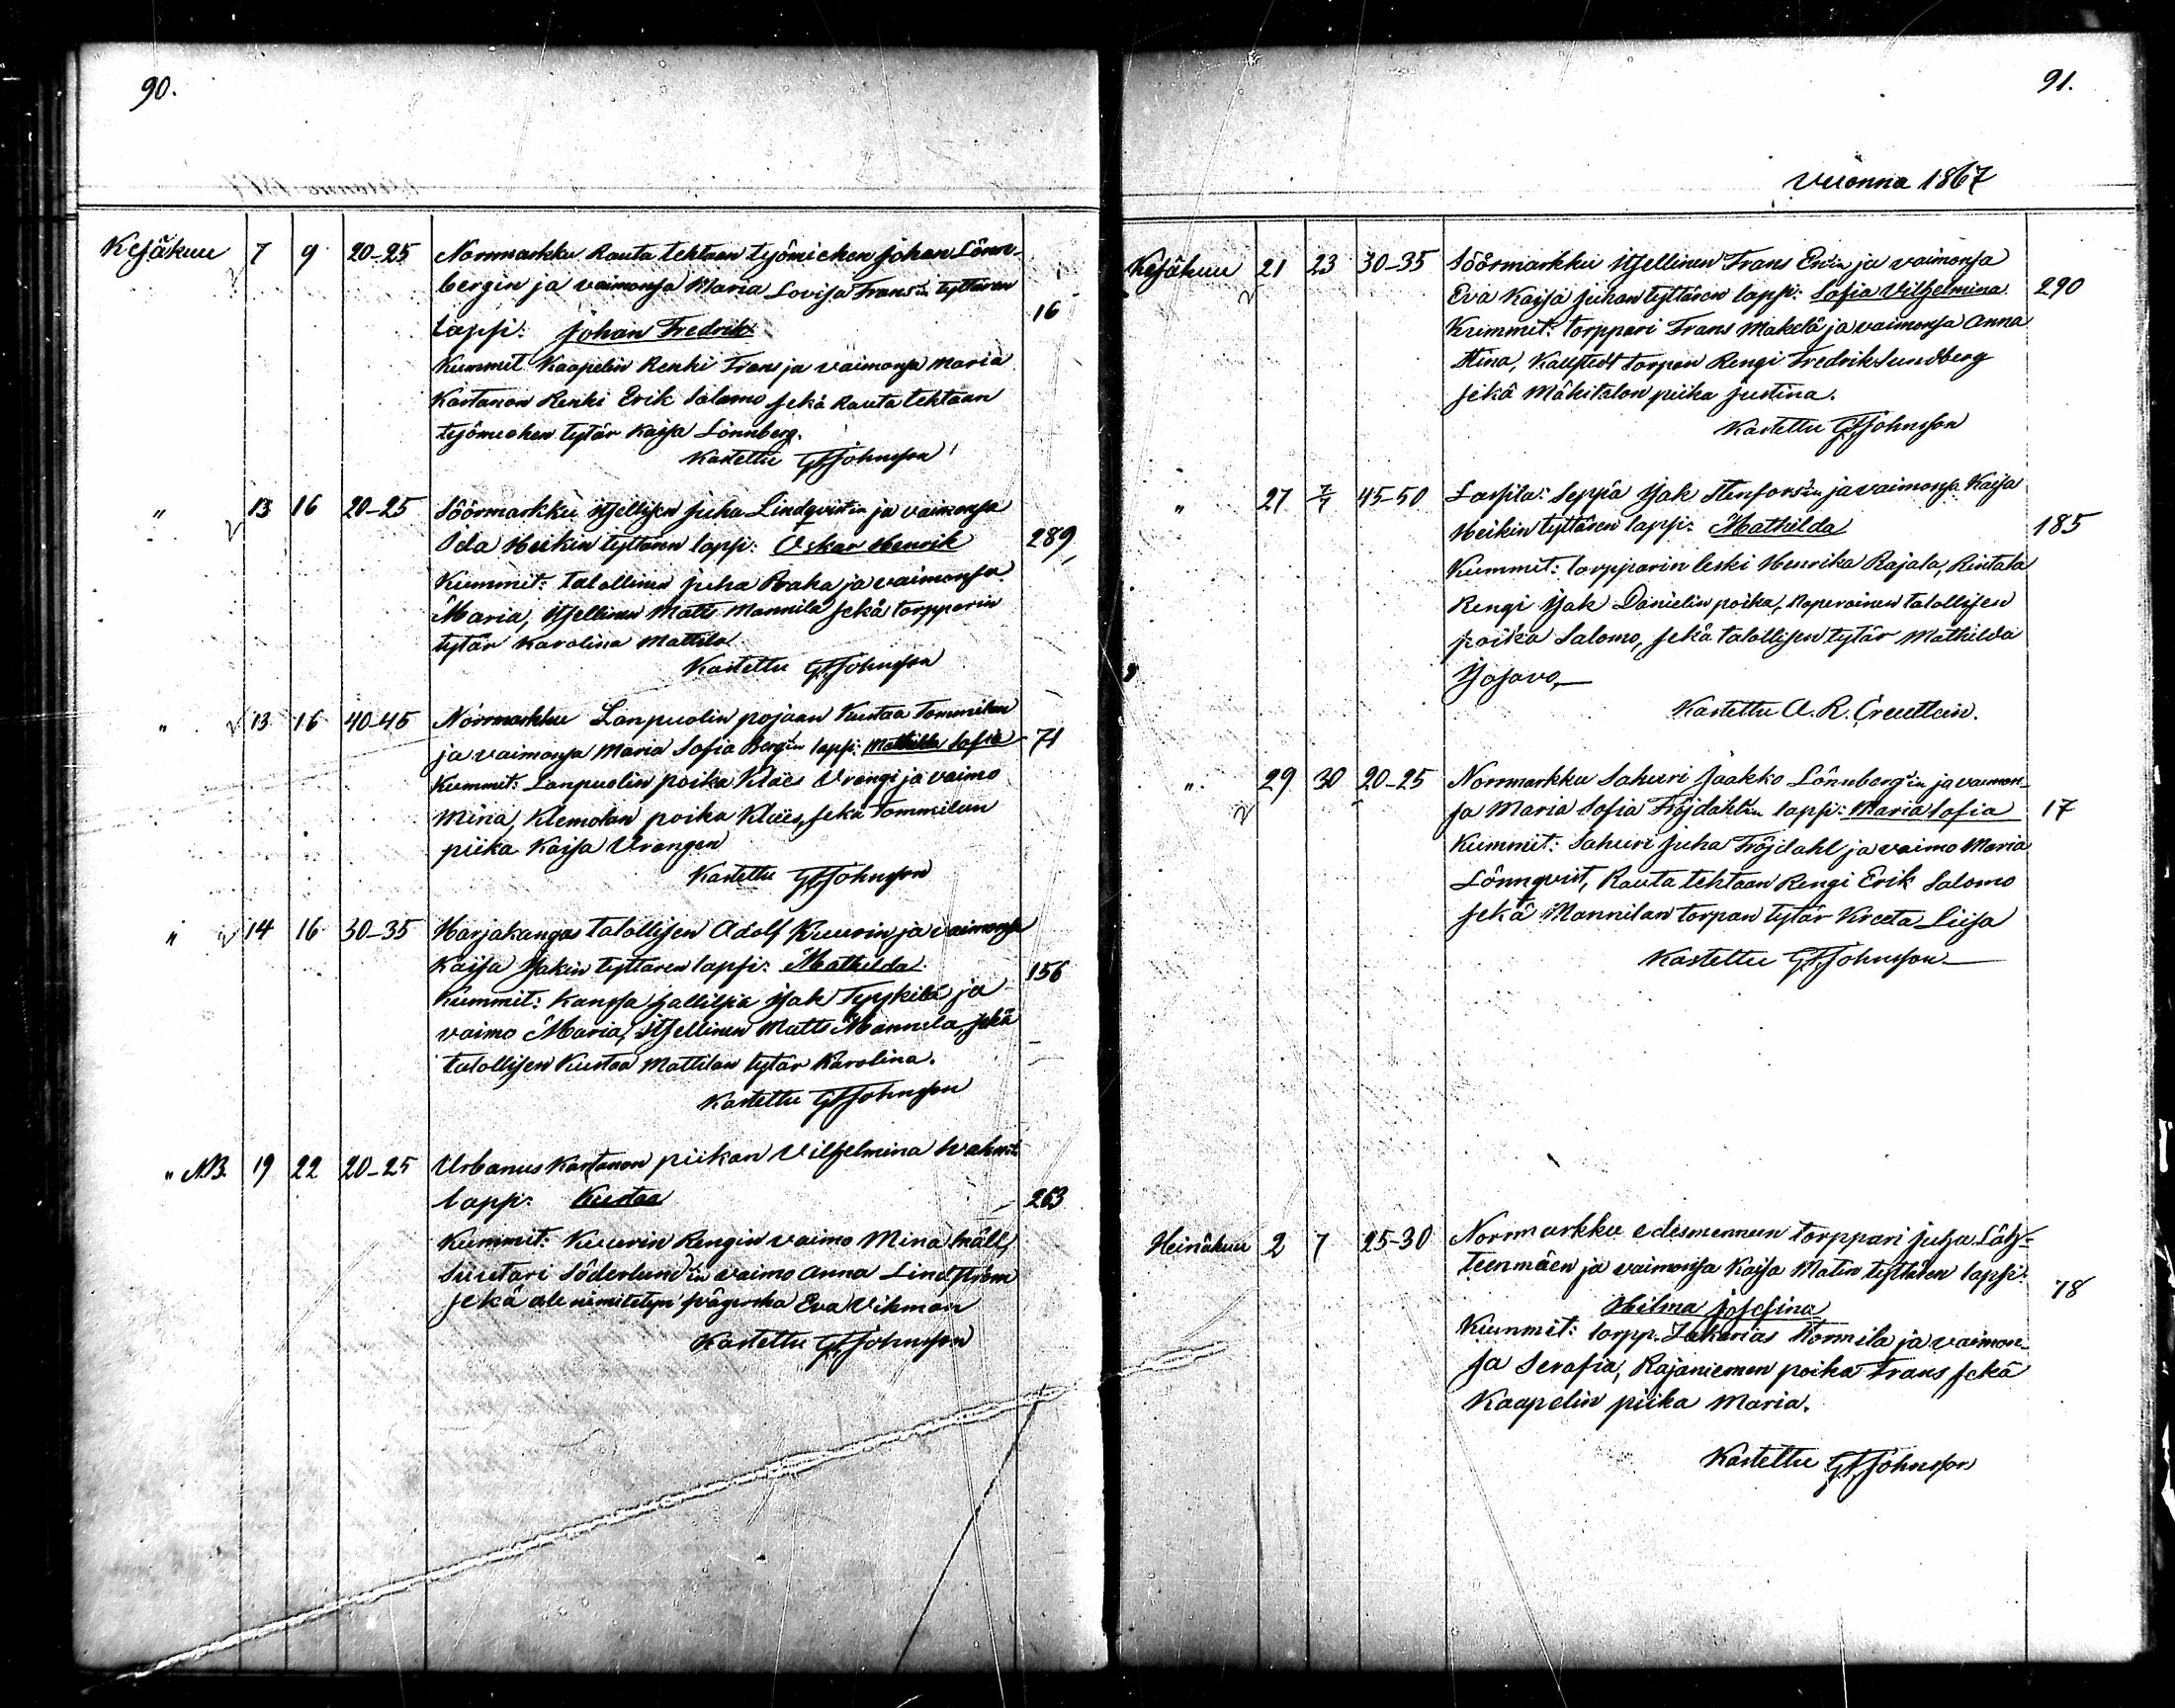 90.
Kesäkuu 7 9 20-25 Norrmarkku Rauta tehtaan työmiehen Johan Lönn-
bergin ja vaimonsa Maria Lovisa Frans'in tyttären
lapsi: Johan Fredrik 16
Kummit Kaapelin Renki Frans ja vaimonsa Maria
Kartanon Renki Erik Salomo sekä Rauta tehtaan
työmiehen tytär Kajsa Lönnberg.
Kastettu G F Johnsson
" 13 16 20-25 Söörmarkku itsellisen Juha Lindqvistin ja vaimonsa
Ida Heikin tyttären lapsi: Oskar Henrik 289
Kummit: talollinen Juha Paha ja vaimonsa
Maria, itsellinen Matts Mannila sekä torpparin
tytär Karolina Mattila
Kastettu G F Johnsson
" 13 16 40-45 Norrmarkku Lanpuolin pojaan Kustaa Tommilan
ja vaimonsa Maria Sofia Berg'in lapsi: Mathilda Sofia 71
Kummit: Lanpuolin poika Klaes Vrangi ja vaimo
Mina, Klemolan poika Klaes, sekä Tommilan
piika Kaisa Vrangen
Kastettu G F Johnsson
" 14 16 30-35 Harjakangas talollisen Adolf Kuurin ja vaimonsa
Kaisa Isakin tyttären lapsi: Mathilda 156
Kummit: Isak Tyyskilä ja
vaimo Maria, itsellinen Matts Mannila, sekä
talollisen Kustaa Mattilan tytär Karolina.
Kastettu G F Johnsson
" NB. 19 22 20-25 Urbanus Kartanon piikan Vilhelmina
lapsi: Kustaa 263
Kummit: Kuurin Rengin vaimo Mina Mäll,
Suutari Söderlund'in vaimo Anna Lindström
sekä ale nimitetyn Eva Vikman
Kastettu G F Johnsson
91.
Vuonna 1867
Kesäkuu 21 23 30-35 Söörmarkku itsellinen Frans Ers'in ja vaimonsa
Eva Kaisa Juhan tyttären lapsi: Sofia Vilhelmina 290
Kummit: torppari Frans Mäkelä ja vaimonsa Anna
Stina, Kallstedt torpan Rengi Fredrik Sundberg
sekä Mäkitalon piika Justina.
Kastettu G F Johnsson
" 27 7/7 45-50 Lassila: Seppä Isak Stenfors'in ja vaimonsa Kaisa
Heikin tyttären lapsi: Mathilda 185
Kummit: torpparin leski Henrika Rajala, Rintala
Rengi Isak Danielin poika, talollisen
poika Salomo, sekä talollisen tytär Mathilda
Isosavo,
Kastettu A. R. Creutlein.
" 29 30 20-25 Norrmarkku Sahuri Jaakko Lönnberg'in ja vaimon-
sa Maria Sofia Fröjdahl'in lapsi: Maria Sofia 17
Kummit: Sahuri Juha Fröjdahl ja vaimo Maria
Lönnqvist, Rauta tehtaan Rengi Erik Salomo
sekä Mannilan torpan tytär Kreeta Liisa
Kastettu G F Johnsson
Heinäkuu 2 7 25-30 Norrmarkku edesmennen torppari Juha Läh-
teenmäen ja vaimonsa Kaisa Matin tyttären lapsi: 78
Hilma Josefina
Kummit: torpp. Sakarias Normila ja vaimon-
sa Serafia, Rajaniemen poika Frans sekä
Kaapelin piika Maria.
Kastettu G F Johnsson